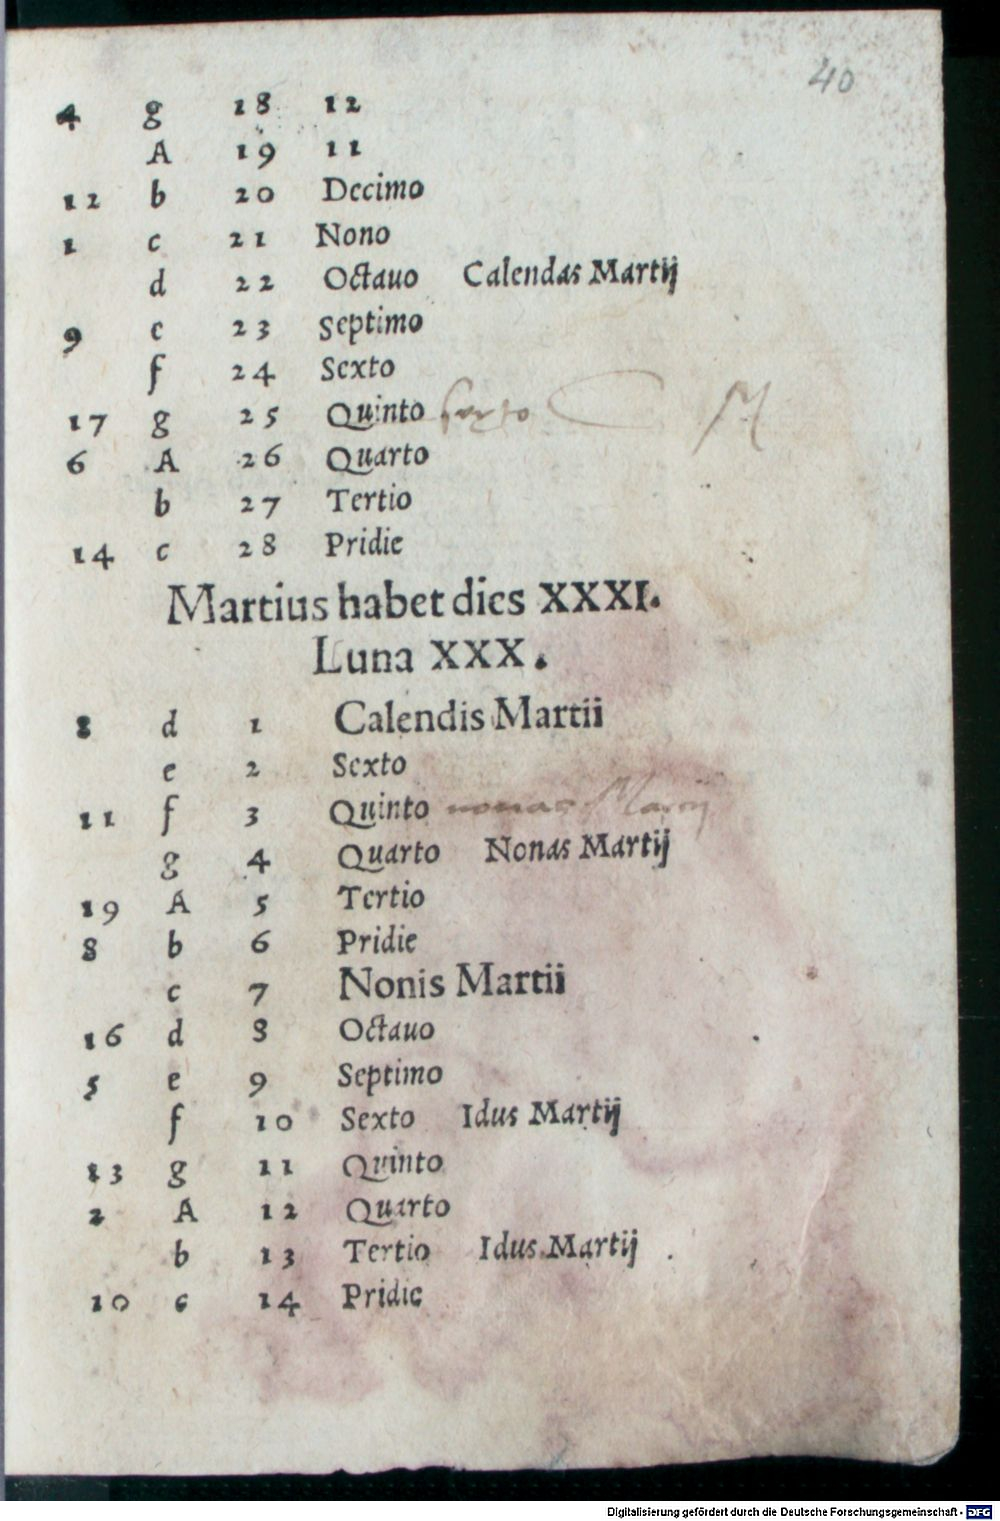 40
4 g 18 12
A 19 11
12 b 20 Decimo
1 c 21 Nono
d 22 Octauo Calendas Martij
9 e 23 Septimo
f 24 Sexto
17 g 25 Quinto sexto C M
6 A 26 Quarto
b 27 Tertio
14 c 28 Pridie
Martius habet dies XXXI.
Luna XXX.
8 d 1 Calendis Martii
e 2 Sexto
11 f 3 Quinto nonas Marcij
g 4 Quarto Nonas Martij
19 A 5 Tertio
8 b 6 Pridie
c 7 Nonis Martii
16 d 8 Octauo
5 e 9 Septimo
f 10 Sexto Idus Martij
13 g 11 Quinto
2 A 12 Quarto
b 13 Tertio Idus Martij .
10 c 14 Pridie
Digitalisierung gefördert durch die Deutsche Forschungsgemeinschaft - DFG